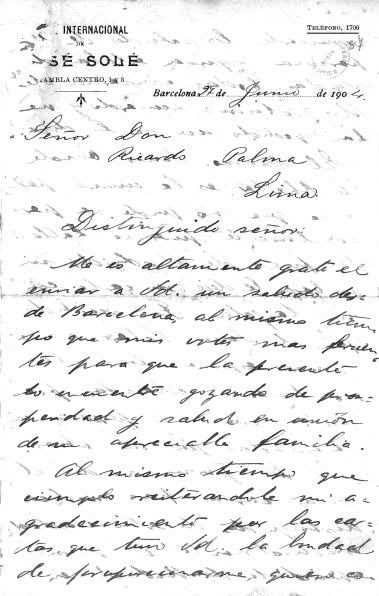 INTERNACIONAL
DE
SÉ SOLÉ
AMBLA CENTRO, 1 Y 3
TELÉFONO, 1700
Barcelona 27 de Junio de 1904
Señor Don
Ricardo Palma
Lima
Distinguido señor:
Me es altamente grato el
enviar a Vd. un saludo des-
de Barcelona, al mismo tiem-
po que mis votos mas fervien-
tes para que la presente
lo encuentre gozando de pros-
peridad y salud en unión
de su apreciable familia.
Al mismo tiempo que
cumplo reiterandole mi a-
gradecimiento por las car-
tas que tuvo Vd. la bondad
de proporcionarme, quiero co